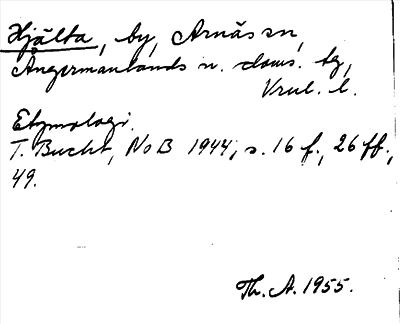 Hjälta, by, Arnäs sn,
Ångermanlands n. doms. tg,
Vrul. l.
Etymologi.
T. Bucht, NoB 1944, s. 16 f., 26 ff.,
49.
Th. A. 1955.